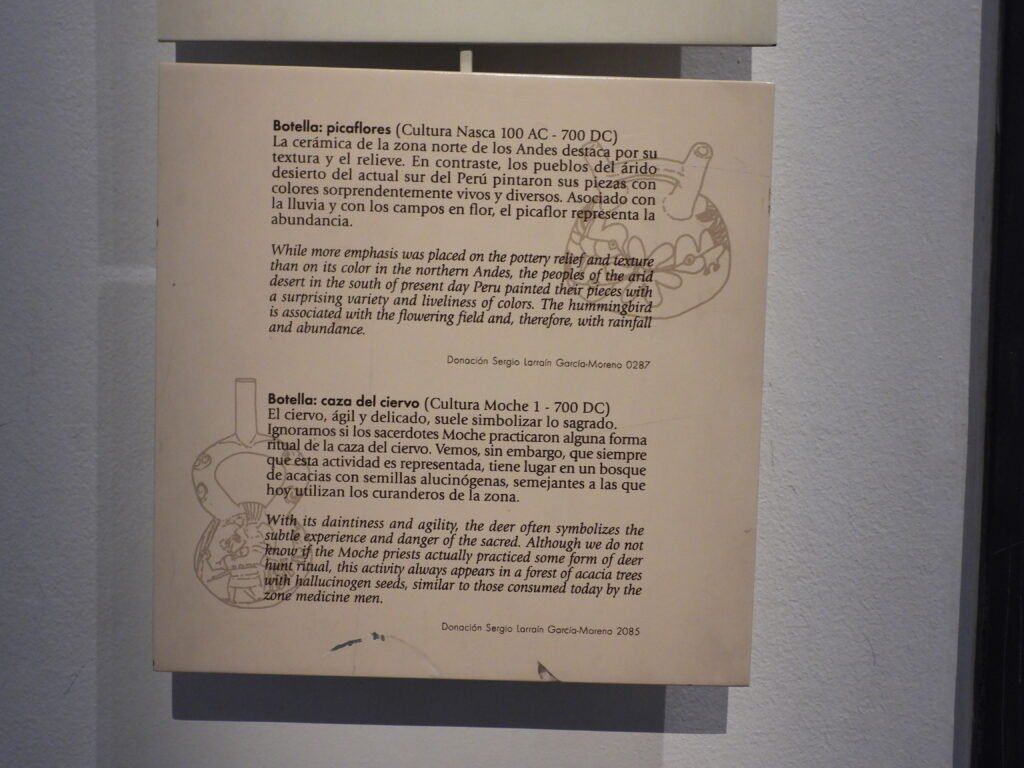 Botella: picaflores (Cultura Nasca 100 AC - 700 DC)
La cerámica de la zona norte de los Andes destaca por su
textura y el relieve. En contraste, los pueblos del árido
desierto del actual sur del Perú pintaron sus piezas con
colores sorprendentemente vivos y diversos. Asociado con
la lluvia y con los campos en flor, el picaflor representa la
abundancia.
While more emphasis was placed on the pottery relief and texture
than on its color in the northern Andes, the peoples of the arid
desert in the south of present day Peru painted their pieces with
a surprising variety and liveliness of colors. The hummingbird
is associated with the flowering field and, therefore, with rainfall
and abundance.
Donación Sergio Larraín García-Moreno 0287
Botella: caza del ciervo (Cultura Moche 1 - 700 DC)
El ciervo, ágil y delicado, suele simbolizar lo sagrado.
Ignoramos si los sacerdotes Moche practicaron alguna forma
ritual de la caza del ciervo. Vemos, sin embargo, que siempre
que esta actividad es representada, tiene lugar en un bosque
de acacias con semillas alucinógenas, semejantes a las que
hoy utilizan los curanderos de la zona.
With its daintiness and agility, the deer often symbolizes the
subtle experience and danger of the sacred. Although we do not
know if the Moche priests actually practiced some form of deer
hunt ritual, this activity always appears in a forest of acacia trees
with hallucinogen seeds, similar to those consumed today by the
zone medicine men.
Donación Sergio Larraín García-Moreno 2085